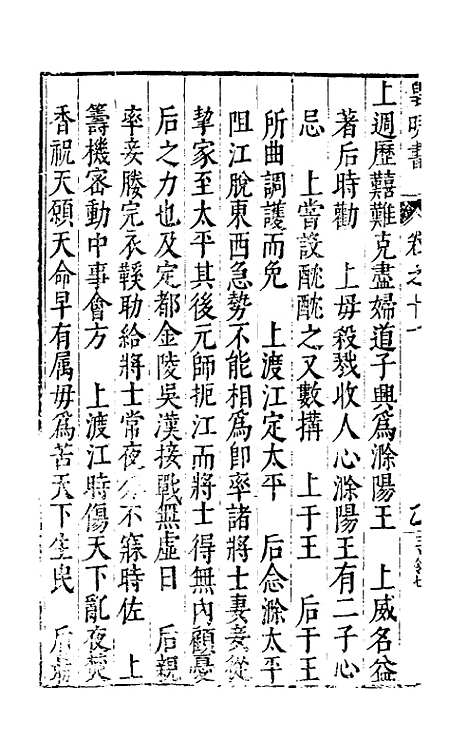 皇明書 卷之十一
上週歷囏難克盡婦道子興為滁陽王　上威名益
著后時勸　上毋殺戮收人心滁陽王有二子心
忌　上嘗設酖酖之又數搆　上于王　后于王
所曲調護而免　上渡江定太平　后念滁太平
阻江脫東西急勢不能相為卽率諸將士妻妾從
挈家至太平其後元師扼江而將士得無內顧憂
后之力也及定都金陵吳漢接戰無虛日　后親
率妾媵完衣鞵助給將士常夜分不寐時佐　上
籌機宻動中事會方　上渡江時傷天下亂夜焚
香祝天願天命早有属毋為苦天下生民　后